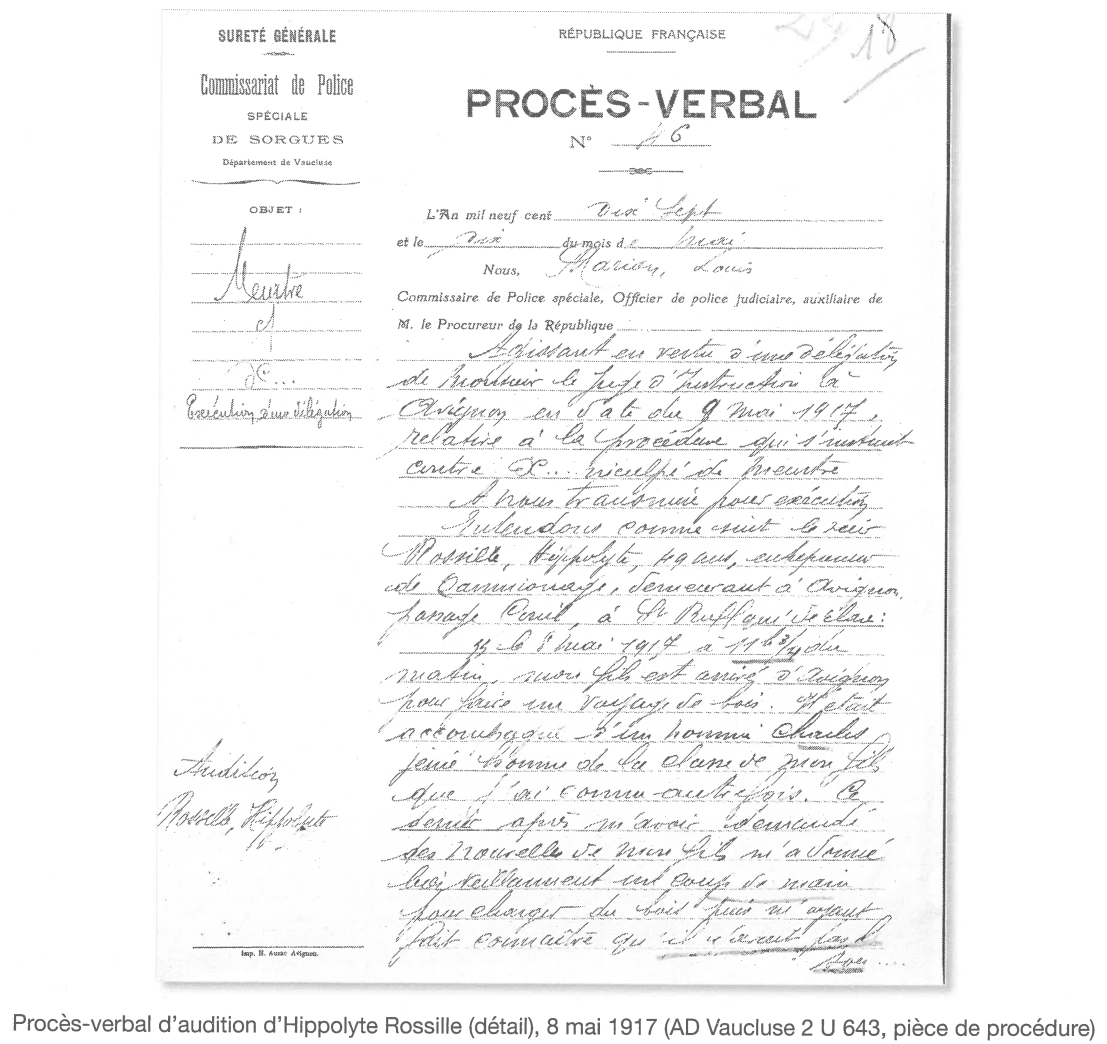 SURETÉ GÉNÉRALE
Commissariat de Police
SPÉCIALE
DE SORGUES
Département de Vaucluse
OBJET :
Meurtre
c/
X...
Exécution d'une délégation
Audition
Rossille, Hippolyte
Imp. H. Aurac Avignon.
RÉPUBLIQUE FRANÇAISE
18
PROCÈS-VERBAL
N° 46
L'An mil neuf cent dix Sept
et le dix du mois de mai
Nous, Marion, Louis
Commissaire de Police spéciale, Officier de police judiciaire, auxiliaire de
M. le Procureur de la République
Agissant en vertu d'une délégation
de Monsieur le Juge d'Instruction à
Avignon en date du 9 mai 1917,
relative à la procédure qui s'instruit
contre X... inculpé de meurtre
A nous transmise pour exécution
Entendons comme suit le sieur
Rossille, Hippolyte, 49 ans, entrepreneur
de Camionnage, demeurant à Avignon,
passage à St Ruf qui déclare :
le 8 mai 1917 à 11h 3/4 du
matin, mon fils est arrivé d'Avignon
pour faire un voyage de bois. Il était
accompagné d'un nommé Charles
jeune homme de la classe de mon fils
que j'ai connu autrefois. Ce
dernier après m'avoir demandé
des nouvelles de mon fils m'a donné
bienveillamment un coup de main
pour charger du bois puis m'ayant
fait connaître qu'il n'avait pas l
sou ....
Procès-verbal d'audition d'Hippolyte Rossille (détail), 8 mai 1917 (AD Vaucluse 2 U 643, pièce de procédure)